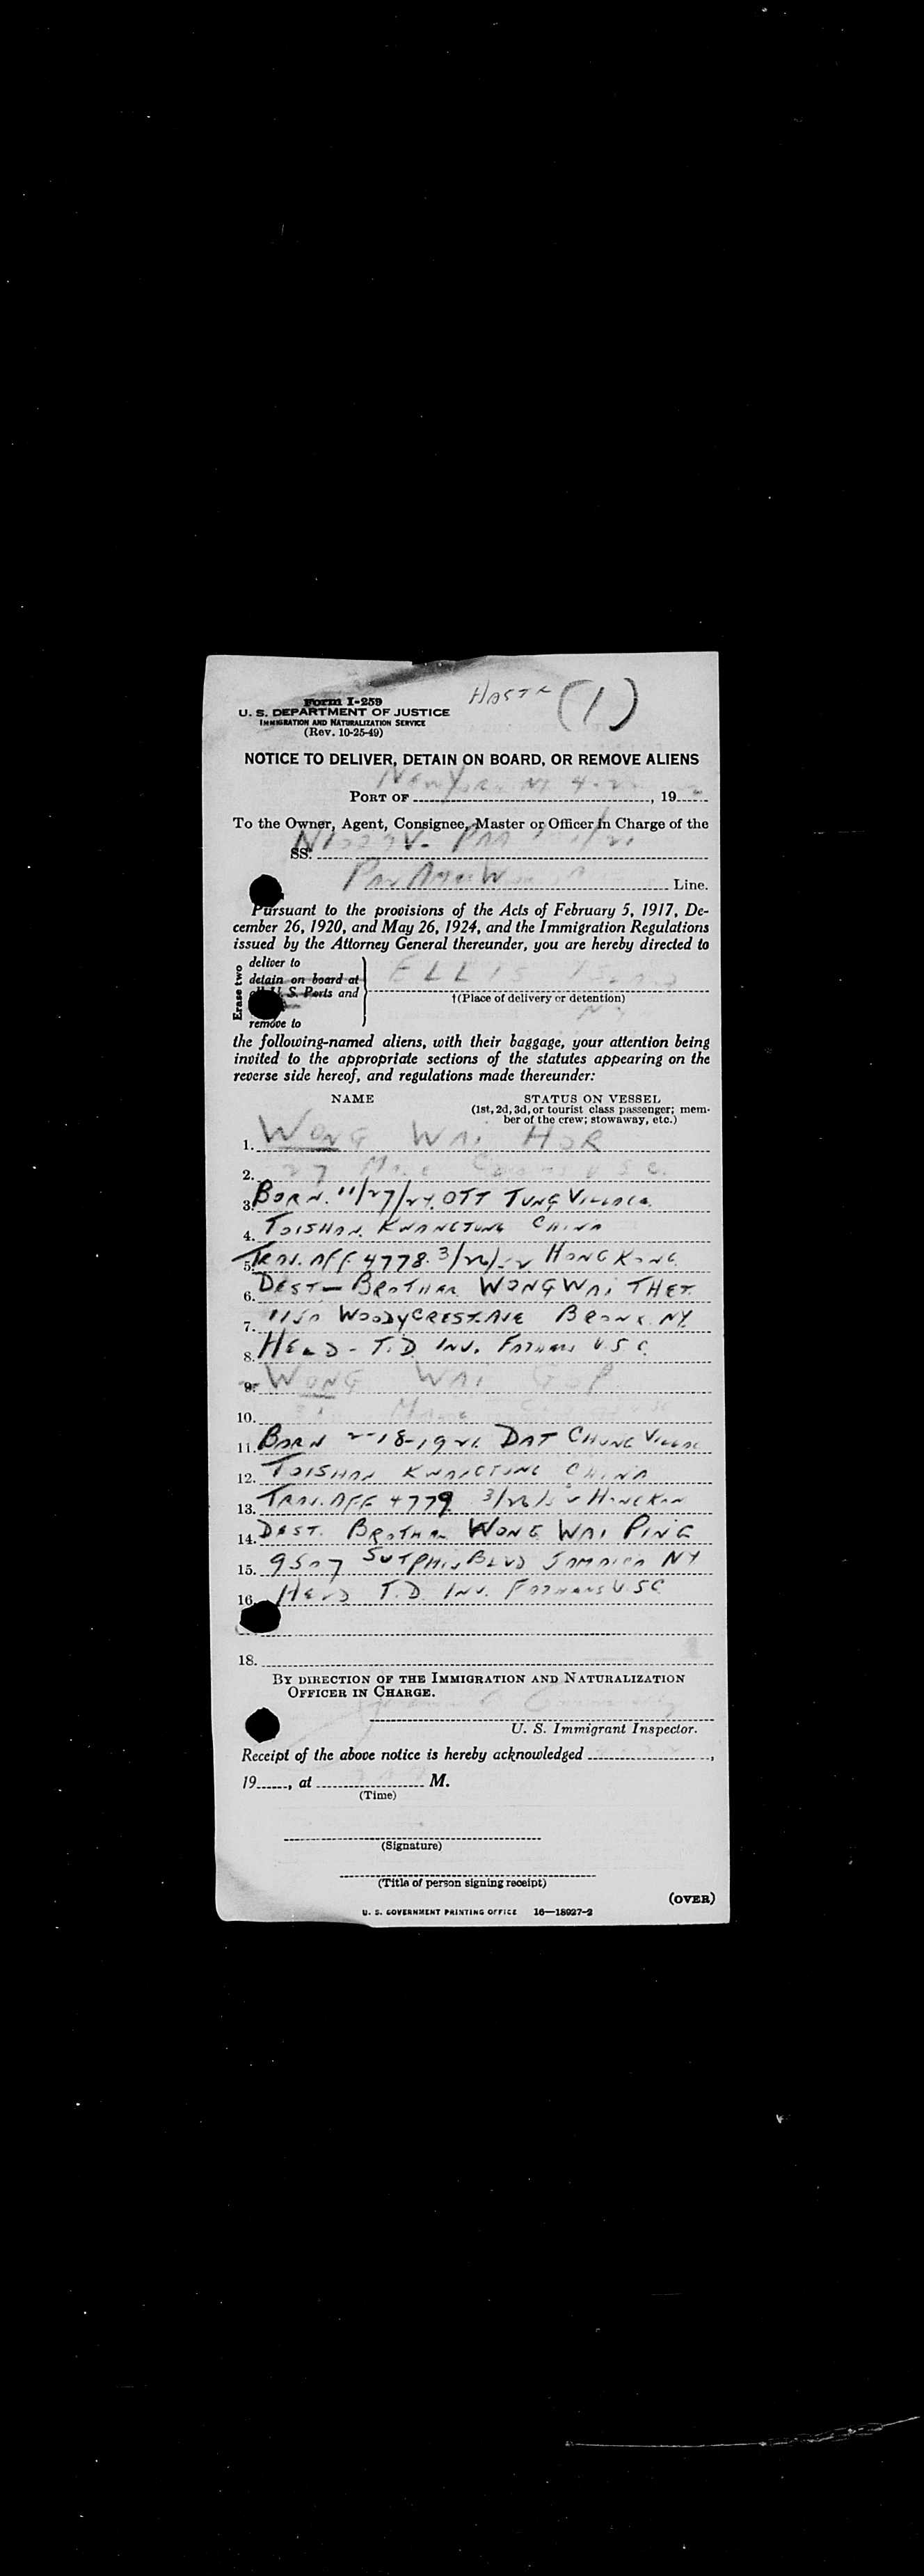 (1)
Form I-259
U. S. DEPARTMENT OF JUSTICE
IMMIGRATION AND NATURALIZATION SERVICE
(Rev. 10-25-49)
NOTICE TO DELIVER, DETAIN ON BOARD, OR REMOVE ALIENS
PORT OF New York NY 4-2 , 19
To the Owner, Agent, Consignee, Master or Officer in Charge of the
SS.
Line.
Pursuant to the provisions of the Acts of February 5, 1917, De-
cember 26, 1920, and May 26, 1924, and the Immigration Regulations
issued by the Attorney General thereunder, you are hereby directed to
Erase two
deliver to
detain on board at
U. S. Ports and
remove to
ELLIS ISLAND
†(Place of delivery or detention)
NY
the following-named aliens, with their baggage, your attention being
invited to the appropriate sections of the statutes appearing on the
reverse side hereof, and regulations made thereunder:
NAME STATUS ON VESSEL
(1st, 2d, 3d, or tourist class passenger; mem-
ber of the crew; stowaway, etc.)
1. WONG WAI HOR
2. 27 Male U S C.
3. BORN. 11/27/24. OTT TUNG VILLAGE
4. TOISHAN. KWANGTUNG CHINA
5. TRAV. AFF. 4778. 3/26/52 HONG KONG
6. DEST — BROTHER WONG WAI THET.
7. WOODYCREST. AVE BRONX. NY.
8. HELD - T.D INV. FATHERS U.S C.
9. WONG WAI GOP
10. MALE
11. BORN 2-18-1921. DAT CHUNG VILLAG
12. TOISHAN KWANGTUNG CHINA
13. TRAV. AFF 4779. 3/26/52 HONGKON
14. DEST. BROTHER WONG WAI PING
15. 9507 SUTPHIN BLVD JAMAICA NY
16. HELD T.D. INV. FATHERS U.SC
18.
BY DIRECTION OF THE IMMIGRATION AND NATURALIZATION
OFFICER IN CHARGE.
U. S. Immigrant Inspector.
Receipt of the above notice is hereby acknowledged ,
19 , at M.
(Time)
(Signature)
(Title of person signing receipt)
(OVER)
U. S. GOVERNMENT PRINTING OFFICE 16—18927-2